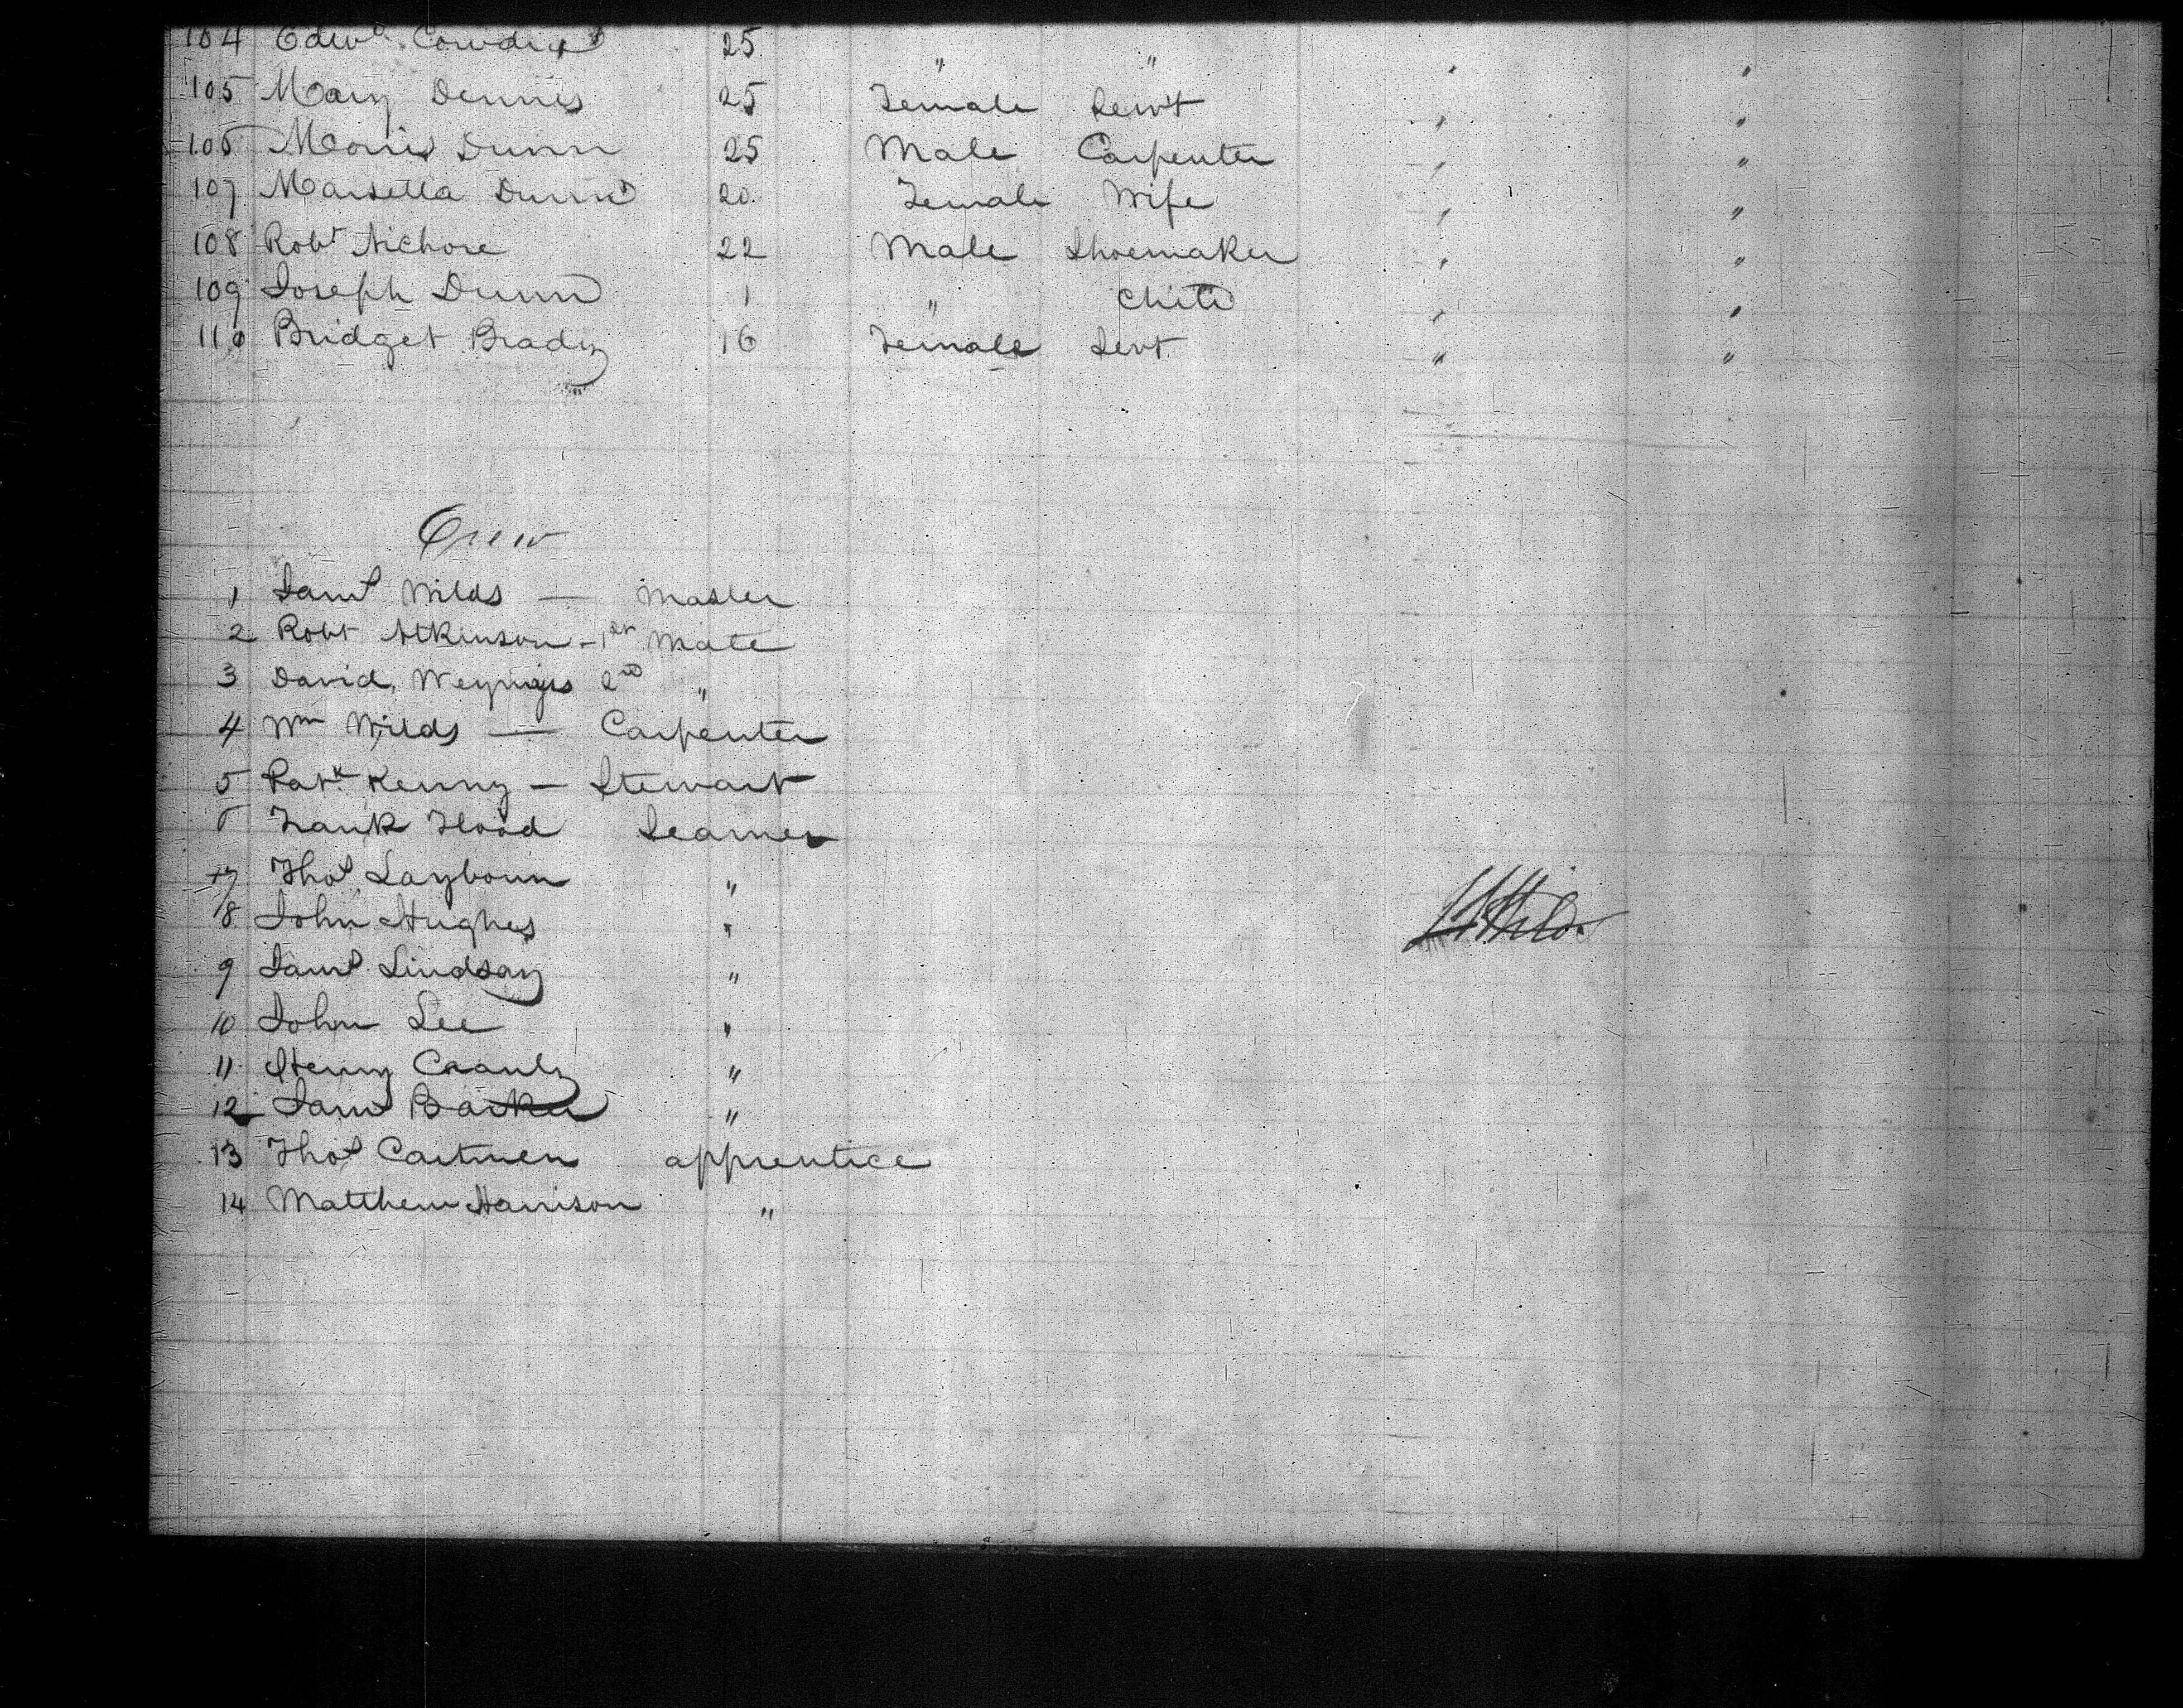 104 Edwd 25 " " " "
105 Mary Dennis 25 Female Servt " "
106 Morris Dunn 25 Male Carpenter " "
107 Marsella Dunn 20 Female Wife " "
108 Robt Nichore 22 Male Shoemaker " "
109 Joseph Dunn 1 " Child " "
110 Bridget Brady 16 Female Servt " "
Crew
1 Saml Wilds — Master
2 Robt Atkinson - 1st Mate
3 David 2nd "
4 Wm Wilds — Carpenter
5 Patk Kenny — Stewart
6 Frank Flood Seamen
7 Thos Laybourn "
8 John Hughes "
9 Saml Lindsay "
10 John Lee "
11 Henry "
12 Saml Barker "
13 Thos Cartmen apprentice
14 Matthew Harrison "